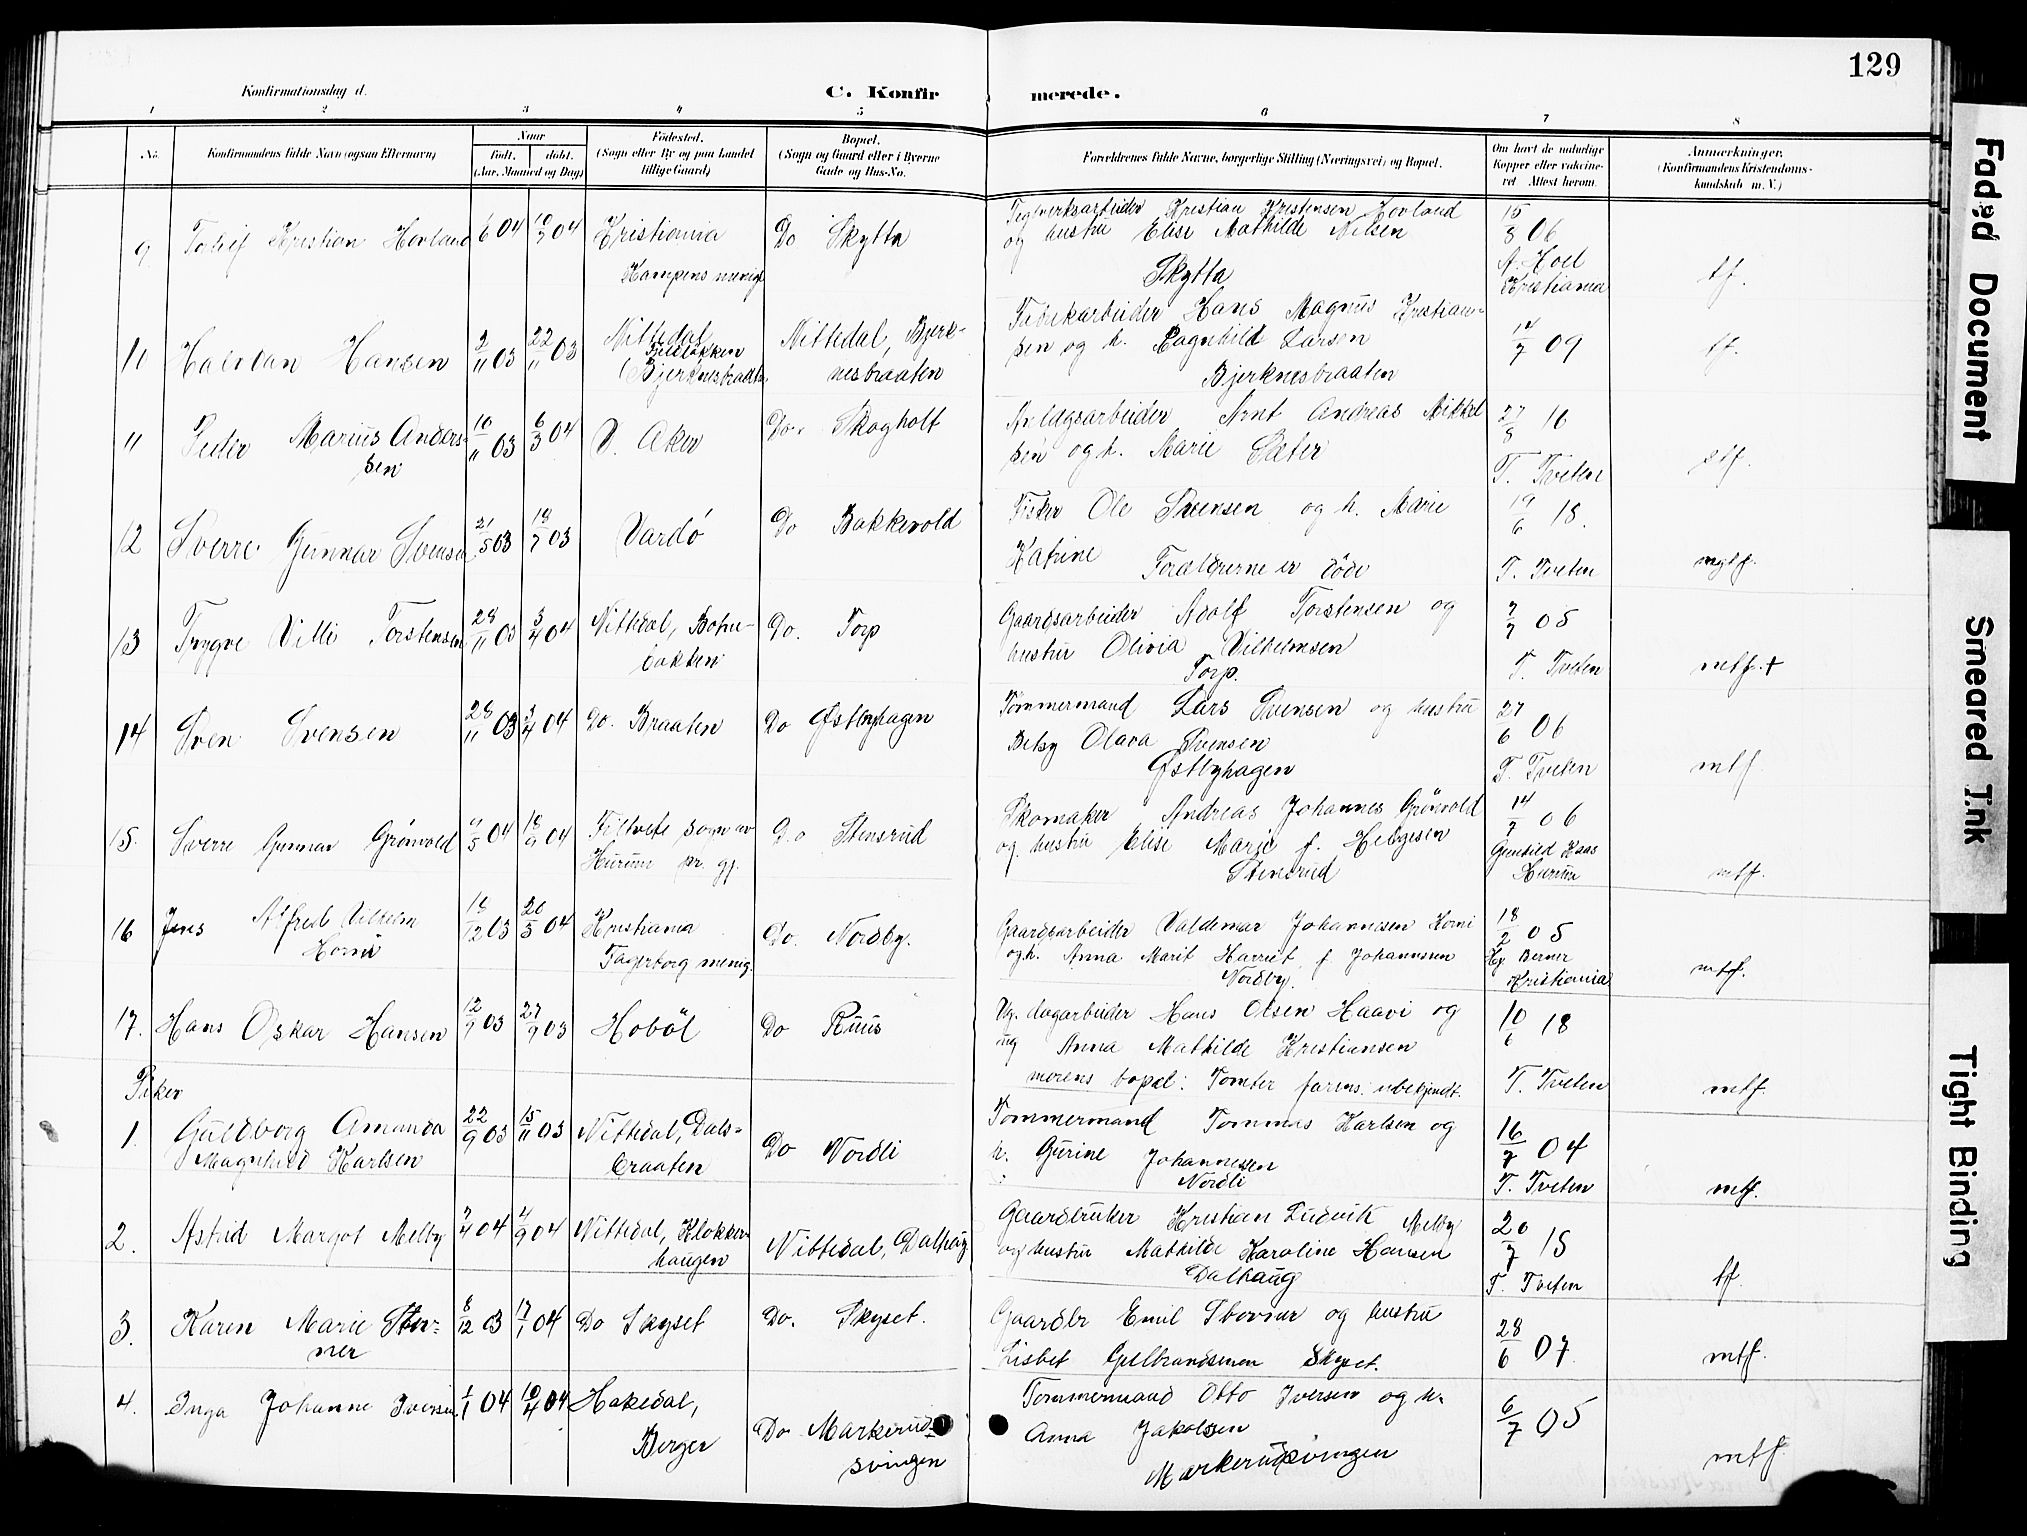 129
Konfirmationsdag d.
C. Konfirmerede.
1 2 3 4 5 6 7 8
No. Konfirmandens fulde Navn (ogsaa Efternavn) Naar født. døbt. (Aar, Maaned og Dag) Fødested. (Sogn eller By og paa Landet tillige Gaard) Bopæl. (Sogn og Gaard eller i Byerne Gade og Hus-No. Forældrenes fulde Navne, borgerlige Stilling (Næringsvei) og Bopæl. Om havt de naturlige Kopper eller vaccineret Attest herom. Anmærkninger. (Konfirmandens Kristendomskundskab m. V.)
9 Kristian Hovland 6 04 10/7 04 Kristiania Do Skytta Teglverksarbeider Kristian Kristensen Hovland 15/3 06
Kampens menigh og hustru Elise Mathilde Nilsen A. Hoel
Skytta Kristiania tf.
11 Halvdan Hansen 2/11 03 22/11 03 Nittedal, Nittedal, Bjerk- Fabrikarbeider Hans Magnus Kristian- 14/7 09 tf.
Bjerknesbraaten nesbraaten sen og h. Ragnhild Larsen
Bjerknesbraaten
11 Peder Marius Anders- 10/11 03 6/3 04 V. Aker Do. Skogholt Anlægsarbeider Arnt Andreas Mikkel 27/8 16
sen sen og h. Marie Sæter T. Tveten stf.
12 Sverre Gunnar Svensen 21/5 03 19/7 03 Vardø Do Bakkevold Fisker Ole Svensen og h. Marie 19/6 18.
Katrine Forældrene er døde T. Tveten mgtf.
13 Trygve Villi Torstensen 28/11 03 3/4 04 Nittedal, Do. Torp Gaardsarbeider Adolf Torstensen og 7/7 05
bakken hustru Olivia Vilhelmsen
Torp. T. Tveten mtf. +
14 Sven Svensen 28/11 03 3/4 04 Do. Braaten Do Østbyhagen Tømmermand Lars Svensen og hustru 27/6 06
Betsy Olava Svensen
Østbyhagen T. Tveten mtf.
15. Sverre Gunnar Grønvold 4/5 04 18/9 04 Filtvet sogn av Do Stensrud Skomaker Andreas Johannes Grønvold 14/7 06
Hurum pr. gj. og hustru Elise Marie f. Helgesen Gunhild Kaas
Stensrud Hurum mtf.
16 Jens Alfred Vilhelm 18/12 03 20/3 04 Kristiania Do. Nordby. Gaardsarbeider Valdemar Johannesen Horni 18/2 05
Horni Fagerborg menig. og h. Anna Marit Harriet f. Johannessen Hj Berner
Nordby. Kristiania mtf.
17. Hans Oskar Hansen 12/7 03 27/9 03 Hobøl Do Ruus Vg. dagarbeider Hans Olsen Haavi og 10/6 18
ug Anna Mathilde Kristiansen
morens bopæl: Tomter farens ubekjendt. T. Tveten mtf.
Piker
1. Guldborg Amanda 22/9 03 15/11 03 Nittedal, Dals- Do Nordli Tømmermand Tommas Karlsen og 16/7 04
Magnhild Karlsen braaten h. Gurine Johannessen
Nordli T. Tveten mtf.
2. Astrid Margot Melby 7/4 04 4/9 04 Nittedal, Klokker- Nittedal, Dalhaug Gaardbruker Kristian Ludvik Melby 20/7 15
haugen og hustru Mathilde Karoline Hansen
Dalhaug T. Tveten tf.
3. Karen Marie Stor- 8/12 03 17/1 04 Do Skyset Do. Skyset. Gaardbr Emil Storner og hustru 28/6 07
ner Lisbet Gulbrandsen Skyset. mtf.
4. Inga Johanne Iversen 1/1 04 10/4 04 Hakedal, Do Markerud- Tømmermand Otto Iversen og h. 6/7 05
Berger svingen Anna Jakobsen
Markerudsvingen mtf.
Faded Document
Smeared Ink
Tight Binding